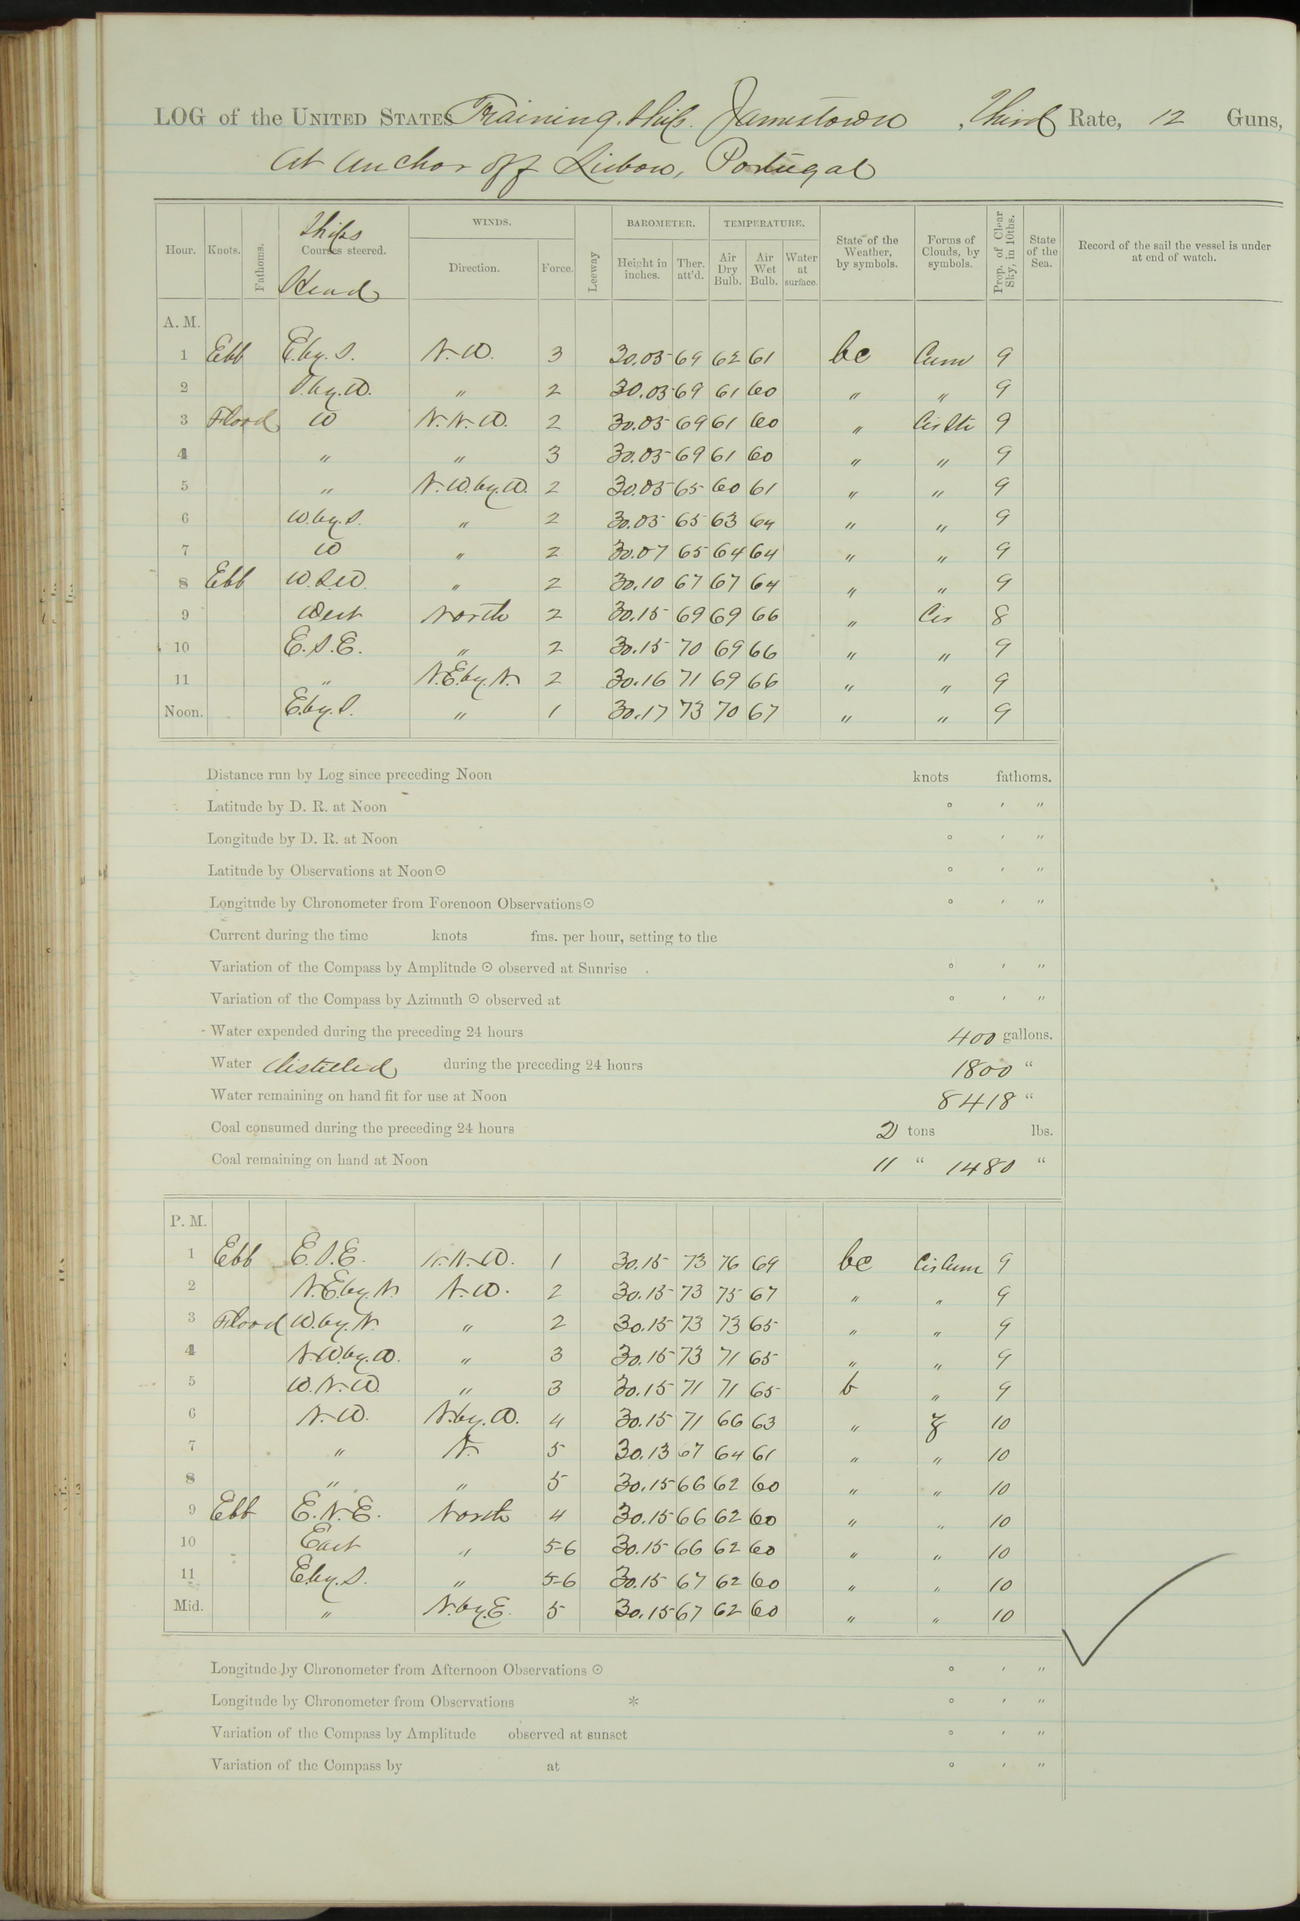 LOG of the UNITED STATES Training Ship Jamestown, Third Rate, 12 Guns,
At Anchor off Lisbon, Portugal
Hour. Knots. Fathoms. Ships Courses steered. Head WINDS. Direction. Force. Leeway BAROMETER. Height in inches. Ther. att'd. TEMPERATURE. Air Dry Bulb. Air Wet Bulb. Water at surface. State of the Weather, by symbols. Forms of Clouds, by symbols. Prop. of Clear Sky, in 10ths. State of the Sea. Record of the sail the vessel is under at end of watch.
A. M.
1 Ebb E.by.S. N.W. 3 30.05 69 62 61 bc Cum 9
2 S.by.W. " 2 30.05 69 61 60 " " 9
3 Flood W N.N.W. 2 30.05 69 61 60 " Cir Str 9
4 " " 3 30.05 69 61 60 " " 9
5 " N.W.by.W. 2 30.05 65 60 61 " " 9
6 W.by.S. " 2 30.05 65 63 64 " " 9
7 W " 2 30.07 65 64 64 " " 9
8 Ebb W.S.W. " 2 30.10 67 67 64 " " 9
9 West North 2 30.15 69 69 66 " Cir 8
10 E.S.E. " 2 30.15 70 69 66 " " 9
11 " N.E.by.N. 2 30.16 71 69 66 " " 9
Noon. E.by.S. " 1 30.17 73 70 67 " " 9
Distance run by Log since preceding Noon knots fathoms.
Latitude by D. R. at Noon ° ′ ″
Longitude by D. R. at Noon ° ′ ″
Latitude by Observations at Noon ☉ ° ′ ″
Longitude by Chronometer from Forenoon Observations ☉ ° ′ ″
Current during the time knots fms. per hour, setting to the
Variation of the Compass by Amplitude ☉ observed at Sunrise . ° ′ ″
Variation of the Compass by Azimuth ☉ observed at ° ′ ″
Water expended during the preceding 24 hours 400 gallons.
Water distilled during the preceding 24 hours 1800 "
Water remaining on hand fit for use at Noon 8418 "
Coal consumed during the preceding 24 hours 2 tons lbs.
Coal remaining on hand at Noon 11 " 1480 "
P. M.
1 Ebb E.S.E. N.N.W. 1 30.15 73 76 69 bc Cir Cum 9
2 N.E.by.N. N.W. 2 30.15 73 75 67 " " 9
3 Flood W.by.N. " 2 30.15 73 73 65 " " 9
4 N.W.by.W. " 3 30.15 73 71 65 " " 9
5 W.N.W. " 3 30.15 71 71 65 b " 9
6 N.W. N.by.W. 4 30.15 71 66 63 " 10
7 " N. 5 30.13 67 64 61 " " 10
8 " " 5 30.15 66 62 60 " " 10
9 Ebb E.N.E. North 4 30.15 66 62 60 " " 10
10 East " 5-6 30.15 66 62 60 " " 10
11 E.by.S. " 5-6 30.15 67 62 60 " " 10
Mid. " N.by.E. 5 30.15 67 62 60 " " 10
Longitude by Chronometer from Afternoon Observations ☉ ° ′ ″
Longitude by Chronometer from Observations * ° ′ ″
Variation of the Compass by Amplitude observed at sunset ° ′ ″
Variation of the Compass by at ° ′ ″